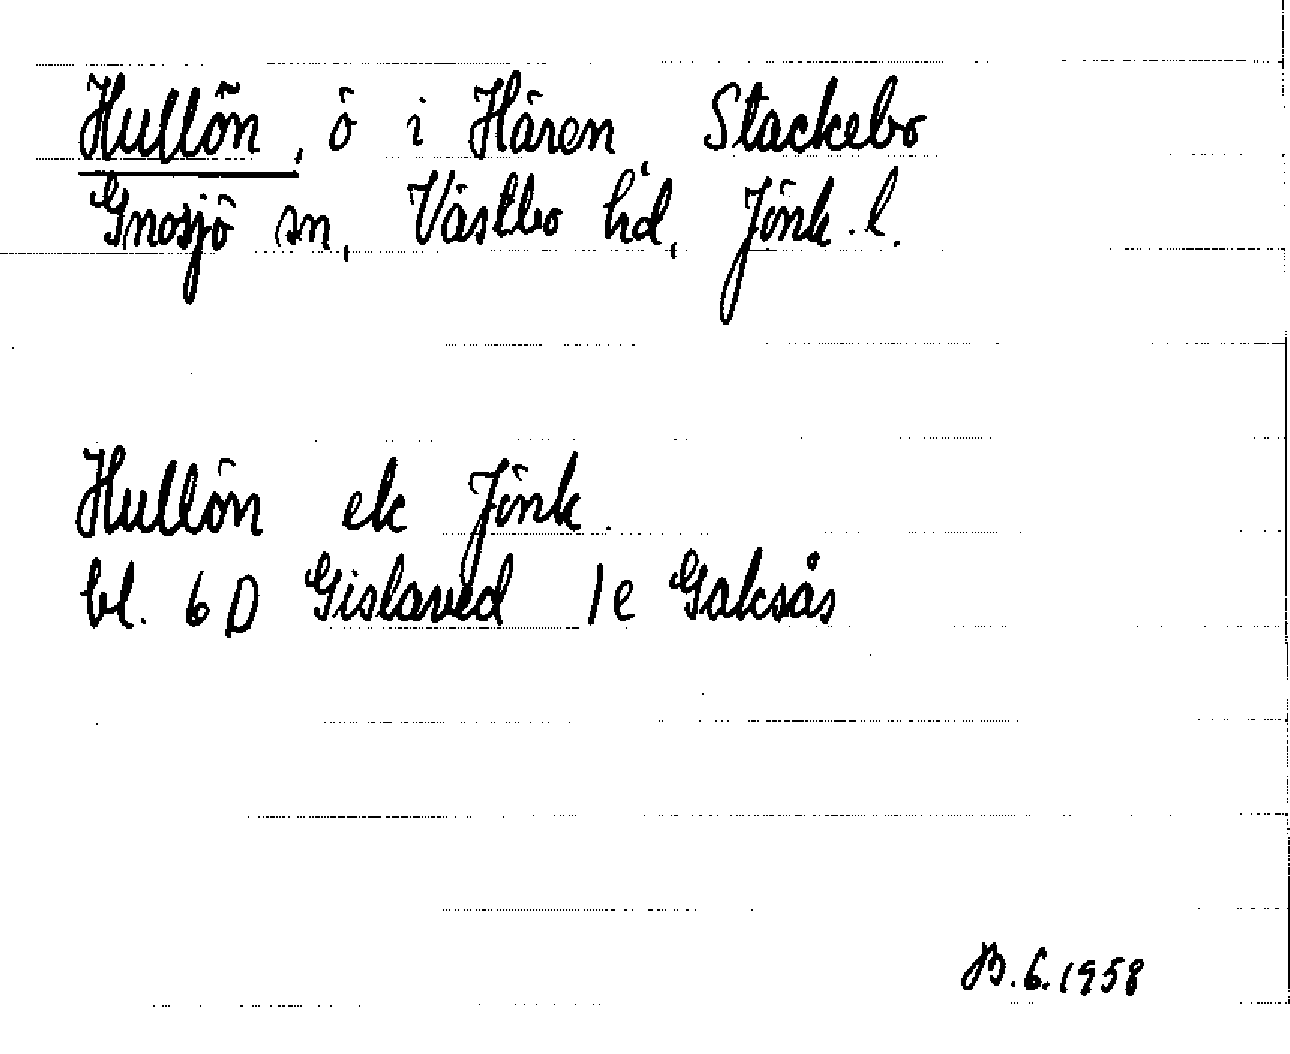 Hullön, ö i Hären Stackebo
Gnosjö sn, Västbo hd, Jönk. l.
Hullön ek Jönk.
bl. 6 D Gislaved 1e Gaksås
B.6.1958